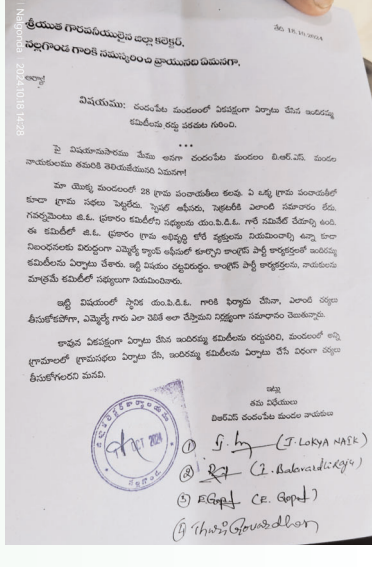 Nalgonda 2024.10.18 14:28
తేది. 18.10.2024
శ్రీయుత గౌరవనీయులైన జిల్లా కలెక్టర్,
నల్లగొండ గారికి నమస్కరించి వ్రాయునది ఏమనగా,
ఆర్యా!
విషయము: చందంపేట మండలంలో ఏకపక్షంగా ఏర్పాటు చేసిన ఇందిరమ్మ
కమిటీలను రద్దు పరచుట గురించి.
***
పై విషయానుసారము మేము అనగా చందంపేట మండలం బి.ఆర్.ఎస్. మండల
నాయకులము తమరికి తెలియజేయునది ఏమనగా!
మా యొక్క మండలంలో 28 గ్రామ పంచాయతీలు కలవు. ఏ ఒక్క గ్రామ పంచాయతీలో
కూడా గ్రామ సభలు పెట్టలేదు. స్పెషల్ ఆఫీసరు, సెక్రటరీకి ఎలాంటి సమాచారం లేదు.
గవర్నమెంటు జి.ఓ. ప్రకారం కమిటీలోని సభ్యులను యం.పి.డి.ఓ. గారే నామినేట్ చేయాల్సి ఉంది.
ఈ కమిటీలో జి.ఓ. ప్రకారం గ్రామ అభివృద్ధి కోరే వ్యక్తులను నియమించాల్సి ఉన్నా కూడా
నిబంధనలకు విరుద్ధంగా ఎమ్మెల్యే క్యాంప్ ఆఫీసులో కూర్చొని కాంగ్రెస్ పార్టీ కార్యకర్తలతో ఇందిరమ్మ
కమిటీలను ఏర్పాటు చేశారు. ఇట్టి విషయం చట్టవిరుద్ధం. కాంగ్రెస్ పార్టీ కార్యకర్తలను, నాయకులను
మాత్రమే కమిటీలో సభ్యులుగా నియమించినారు.
ఇట్టి విషయంలో స్థానిక యం.పి.డి.ఓ. గారికి ఫిర్యాదు చేసినా, ఎలాంటి చర్యలు
తీసుకోకపోగా, ఎమ్మెల్యే గారు ఎలా చెబితే అలా చేస్తామని నిర్లక్ష్యంగా సమాధానం చెబుతున్నారు.
కావున ఏకపక్షంగా ఏర్పాటు చేసిన ఇందిరమ్మ కమిటీలను రద్దుపరిచి, మండలంలో అన్ని
గ్రామాలలో గ్రామసభలు ఏర్పాటు చేసి, ఇందిరమ్మ కమిటీలను ఏర్పాటు చేసే విధంగా చర్యలు
తీసుకోగలరని మనవి.
ఇట్లు
తమ విధేయులు
బిఆర్ఎస్ చందంపేట మండల నాయకులు
OCT 2024
① (T. LOKYA NAIK)
②
③ E. Gopal (E. Gopal)
④ Govardhan